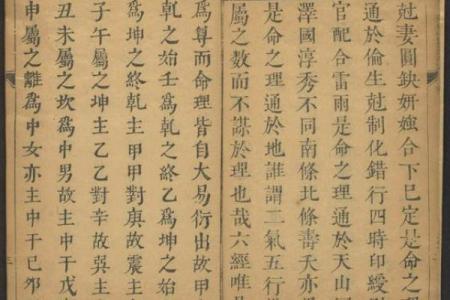 尅妻圓鈌妍媸合下巳定是命之
通於倫生尅制化錯行四時印綬
官配合雷雨是命之理通於天山
澤國淳秀不同南條北條壽夭亦
是命之理通於地誰謂二氣五行
屬之數而不謀於理也哉六經唯
爲尊而命理皆自大易衍出故甲
乾之始壬爲乾之終乙爲坤之始
爲坤之終乾主甲甲對庚故震主
子午屬之坤主乙乙對辛故巽主
丑未屬之坎爲中男故主中干戊
申屬之離爲中女亦主中干已夘